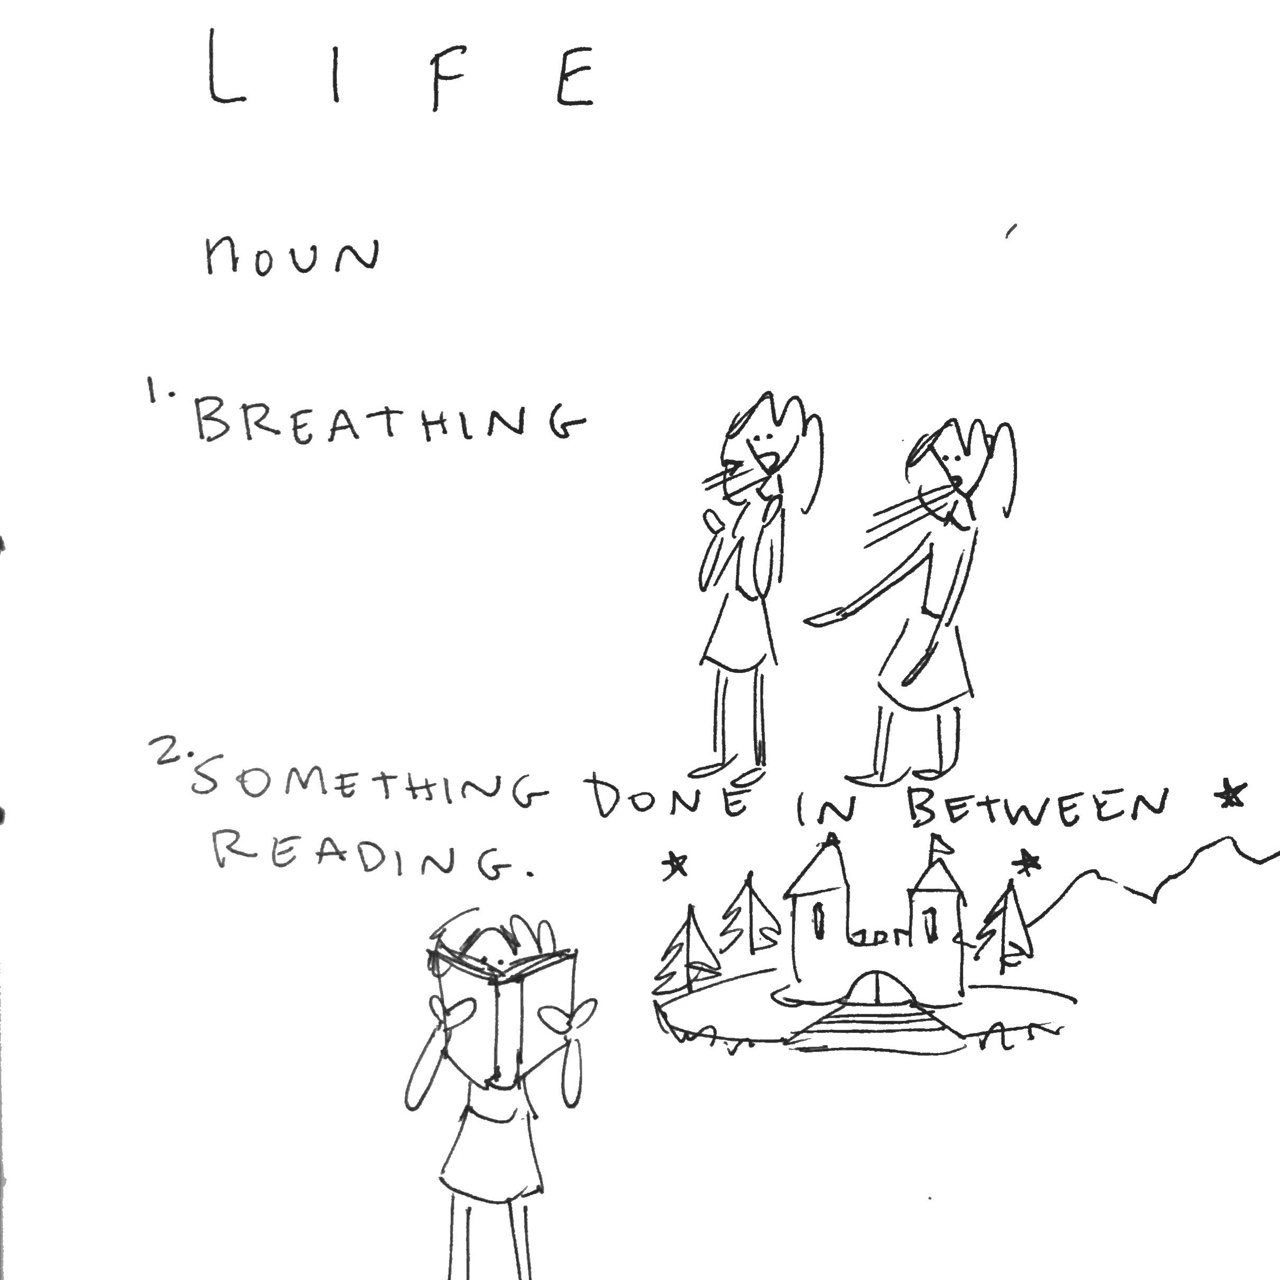 LIFE
noun
1. BREATHING
2. SOMETHING DONE IN BETWEEN
READING.